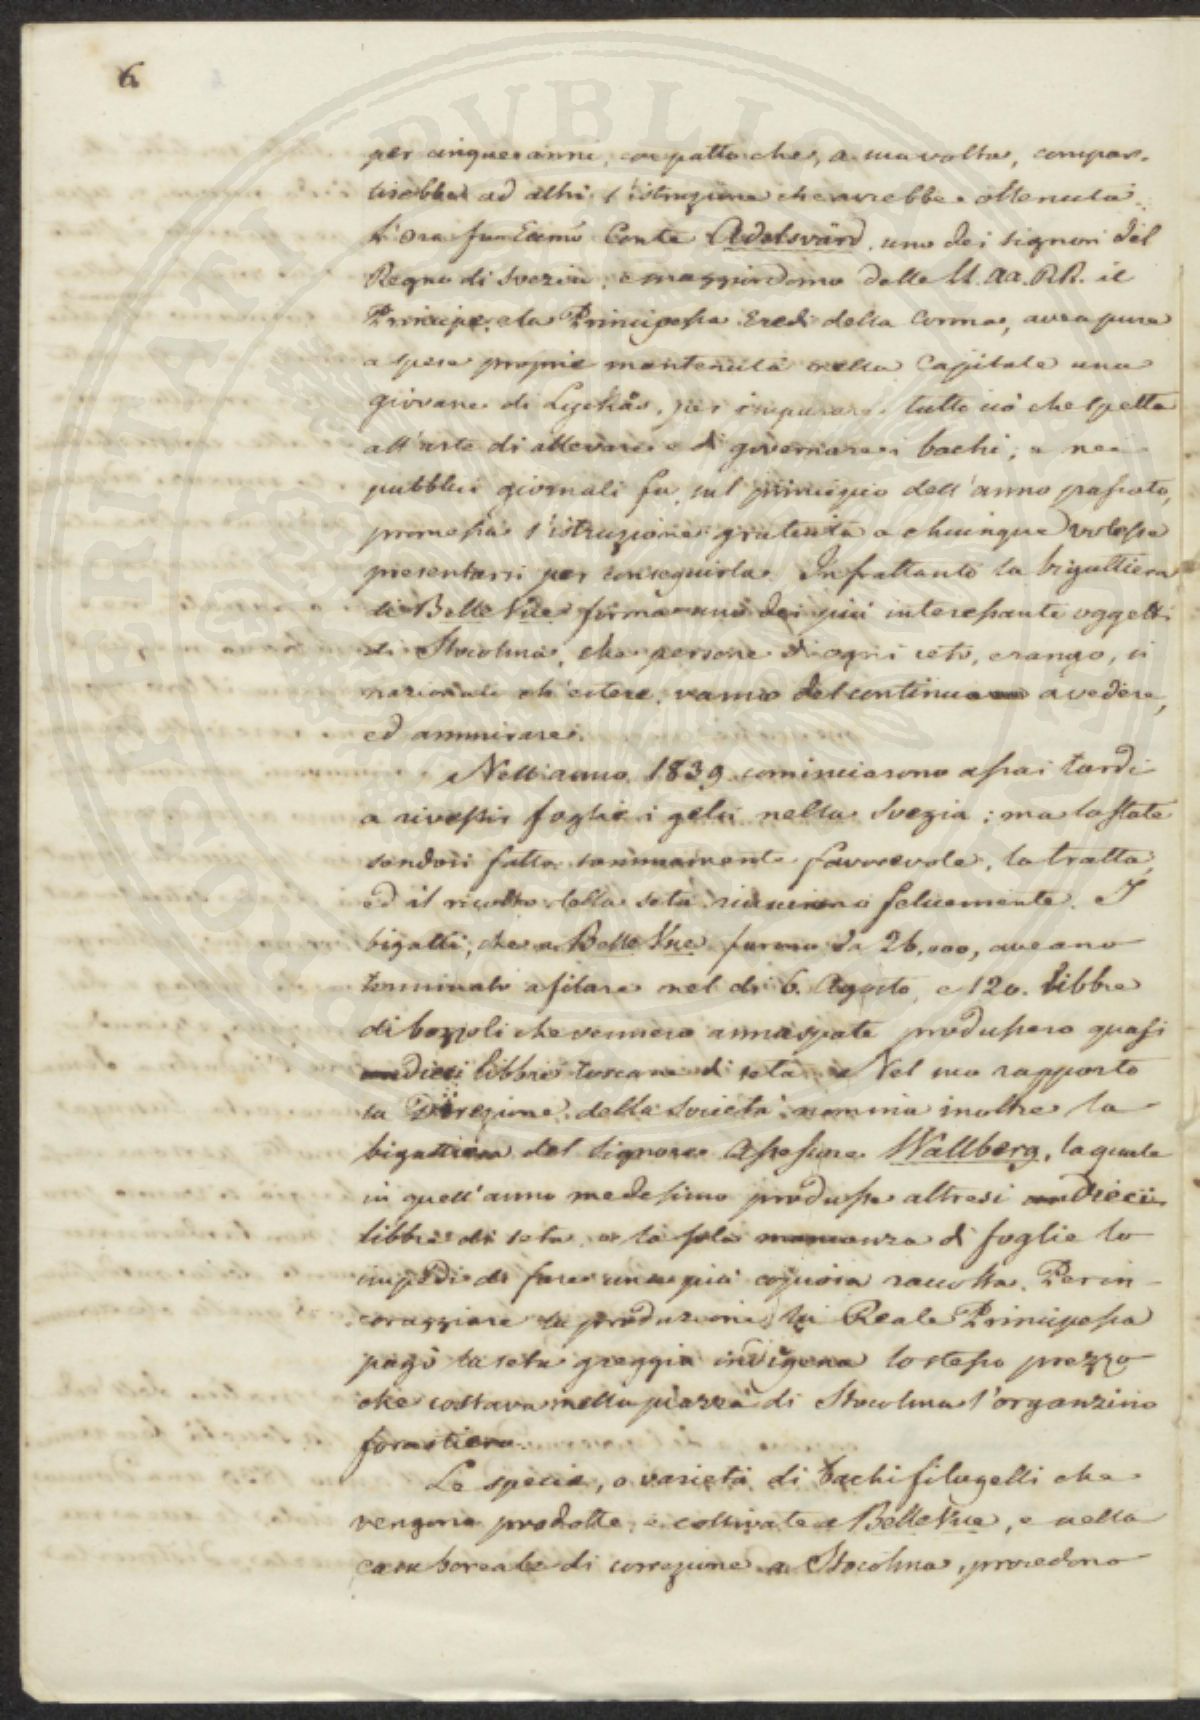 6.
per cinque anni, con patto che, a sua volta, compar-
tirebbe ad altri l'istruzione che avrebbe ottenuta.
L'ora fu Conte Adelsvärd, uno dei signori del
Regno di Svezia, e maggiordomo delle LL. AA. RR. il
Principe, e la Principessa Eredi della Corona, avea pure
a spese proprie mantenuta nella Capitale una
giovane di per imparare tutto ciò che spetta
all'arte di allevare e di governare i bachi; e nei
pubblici giornali fu, sul principio dell'anno passato,
promessa l'istruzione gratuita a chiunque volesse
presentarsi per conseguirla. Infrattanto la bigattiera
di Belle Vue forma uno dei più interessanti oggetti
di Stocolma, che persone di ogni ceto, e rango, sì
nazionali ch'estere, vanno del continuo a vedere,
ed ammirare.
Nell'anno 1839 cominciarono assai tardi
a rivestir foglie i gelsi nella Svezia; ma la state
sendosi fatta sommamente favorevole, la tratta,
ed il ricolto della seta riuscirono felicemente. I
bigatti, che a Belle Vue furono da 26,000, aveano
terminato a filare nel dì 6. Agosto, e 120. libbre
di bozzoli che vennero annaspate produssero quasi
dieci libbre toscane di seta. Nel suo rapporto
la Direzione della Società nomina inoltre la
bigattiera del Signore Assessore Wallberg, la quale
in quell'anno medesimo produsse altresì dieci
libbre di seta, e la sola mancanza di foglie lo
impedì di fare una più copiosa raccolta. Per in-
coraggiare la produzione, la Reale Principessa
pagò la seta greggia indigena lo stesso prezzo
che costava nella piazza di Stocolma l'organzino
forastiero.
Le specie, o varietà di bachi filugelli che
vengono prodotte, e coltivate a Belle Vue, e nella
casa boreale di correzione a Stocolma, procedono